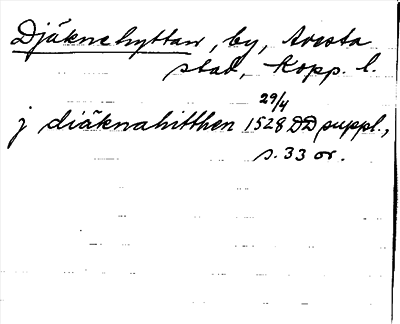 Djäknehyttan, by, Avesta
stad, Kopp. l.
29/4
j diäknahitthen 1528 DD suppl.,
s. 33 or.